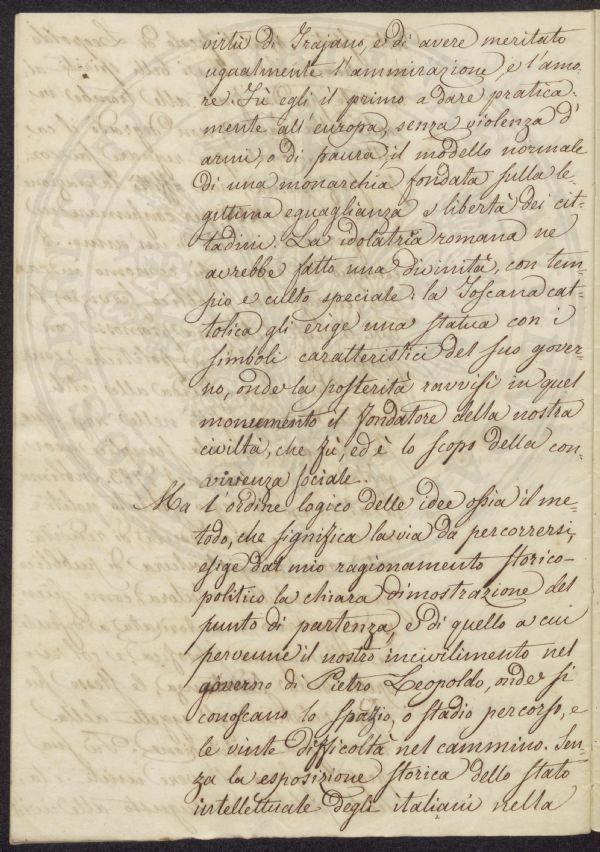 virtù di Trajano, e di avere meritato
ugualmente l'ammirazione, e l'amo-
re. Fù egli il primo a dare pratica-
mente all'europa, senza violenza d'
armi, o di paura, il modello normale
di una monarchia fondata sulla le
gittima eguaglianza e libertà dei cit-
tadini. La idolatria romana ne
avrebbe fatto una divinità, con tem-
pio e culto speciale: la Toscana cat-
tolica gli erige una statua con i
simboli caratteristici del suo gover-
no, onde la posterità ravvisi in quel
monumento il fondatore della nostra
civiltà, che fù, ed è lo scopo della con-
vivenza sociale.
Ma l'ordine logico delle idee ossia il me-
todo, che significa la via da percorrersi,
esige dal mio ragionamento storico-
politico la chiara dimostrazione del
punto di partenza, e di quello a cui
pervenne il nostro incivilimento nel
governo di Pietro Leopoldo, onde si
conoscano lo spazio, o stadio percorso, e
le vinte difficoltà nel cammino. Sen-
za la esposizione storica dello stato
intellettuale degli italiani nella